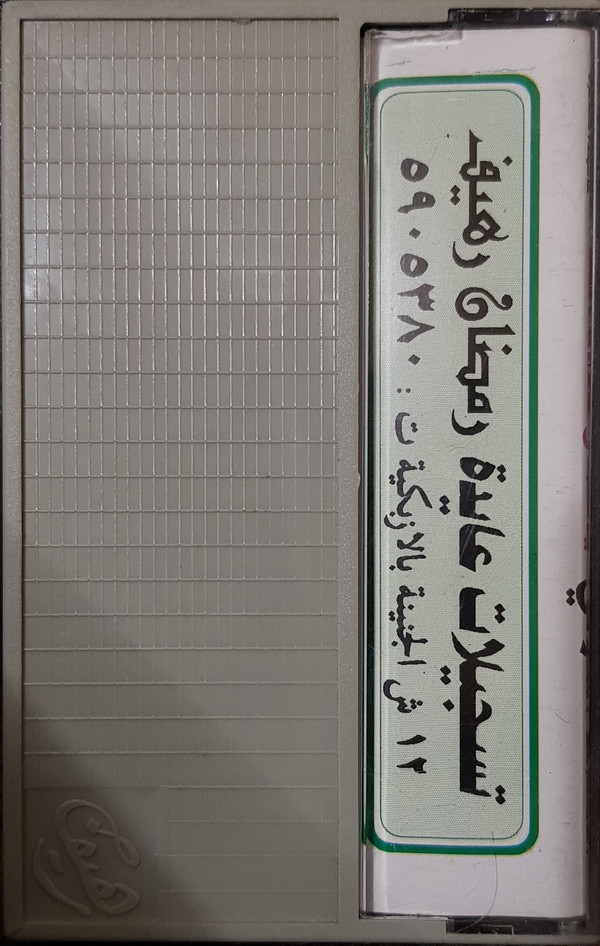 تسجيلات عايدة رمضان رهيف
١٢ ش الجنينة بالازبكية ت : ٥٩٠٥٣٨٠